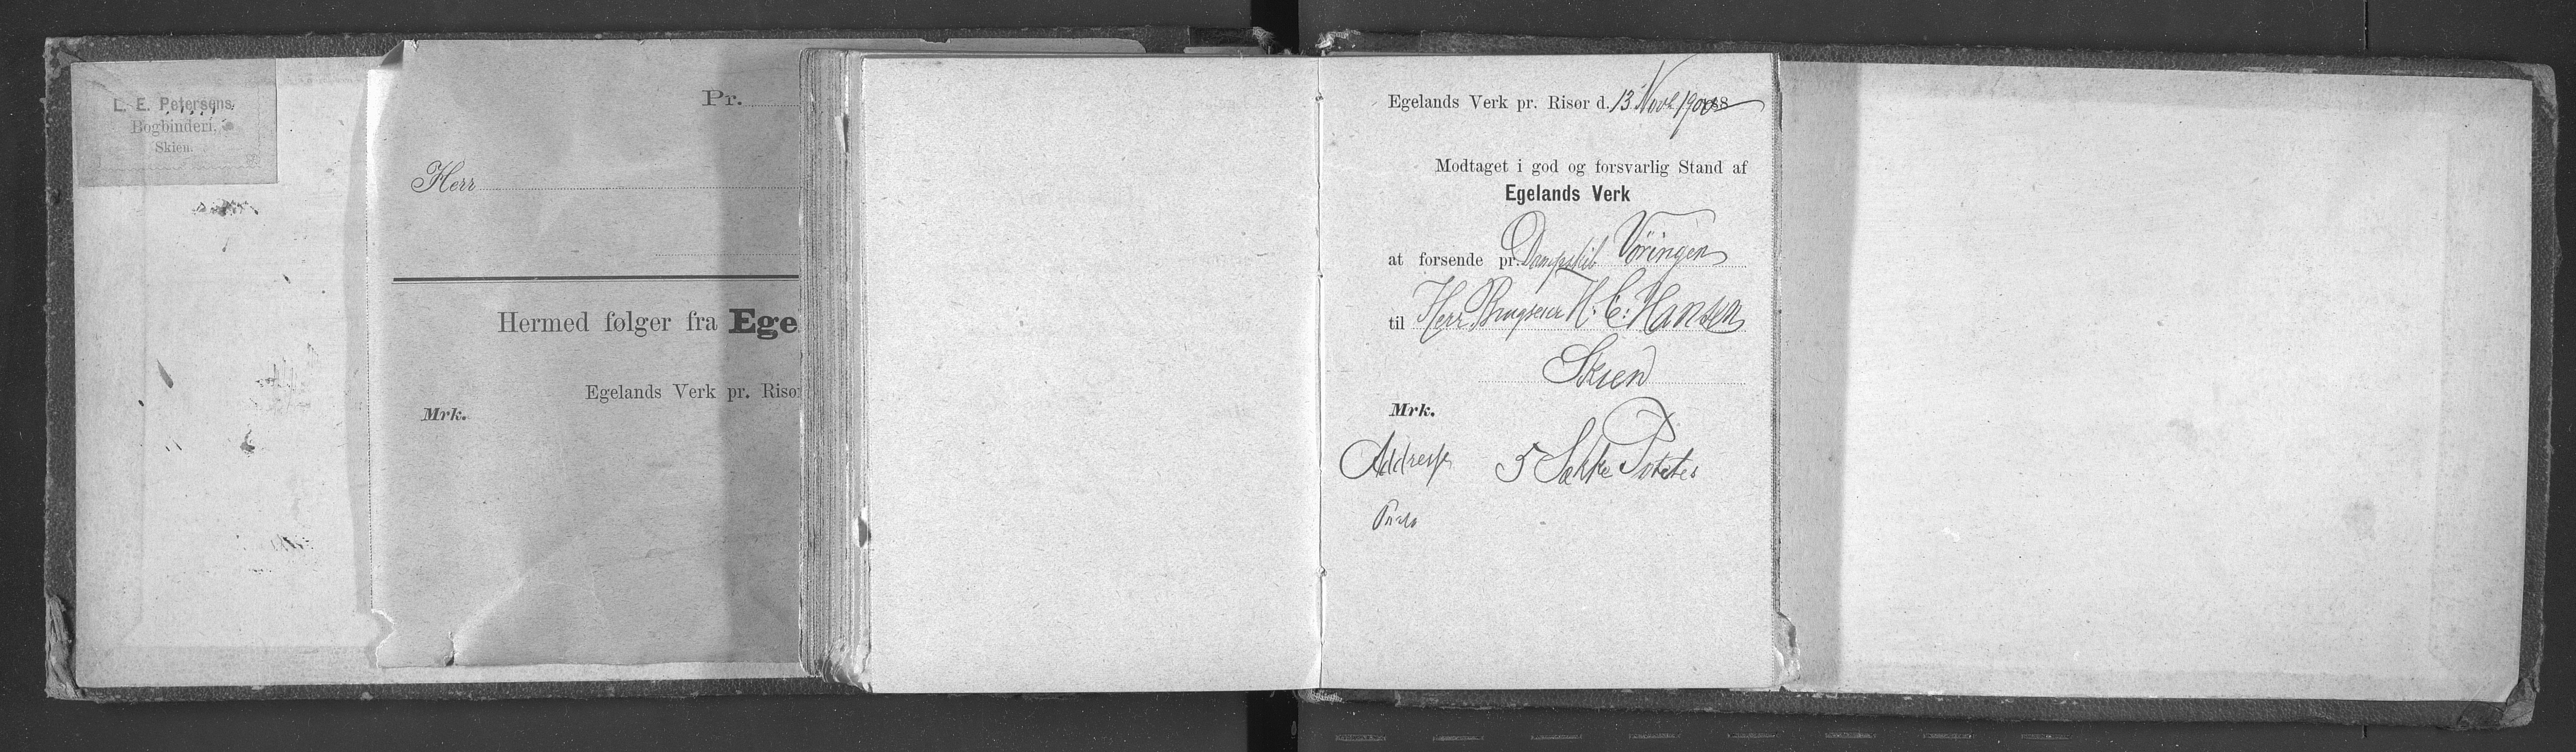 L. E. Petersens
Bogbinderi.
Skien.
Pr.
Herr
Hermed følger fra Ege
Egelands Verk pr. Risør
Mrk.
Egelands Verk pr. Risør d. 13 Novb. 1900
Modtaget i god og forsvarlig Stand af
Egelands Verk
at forsende pr. Dampskib Vöringen
til Herr Brugseier H. C. Hansen
Skien
Mrk.
Addresse 5 Sække Poteter